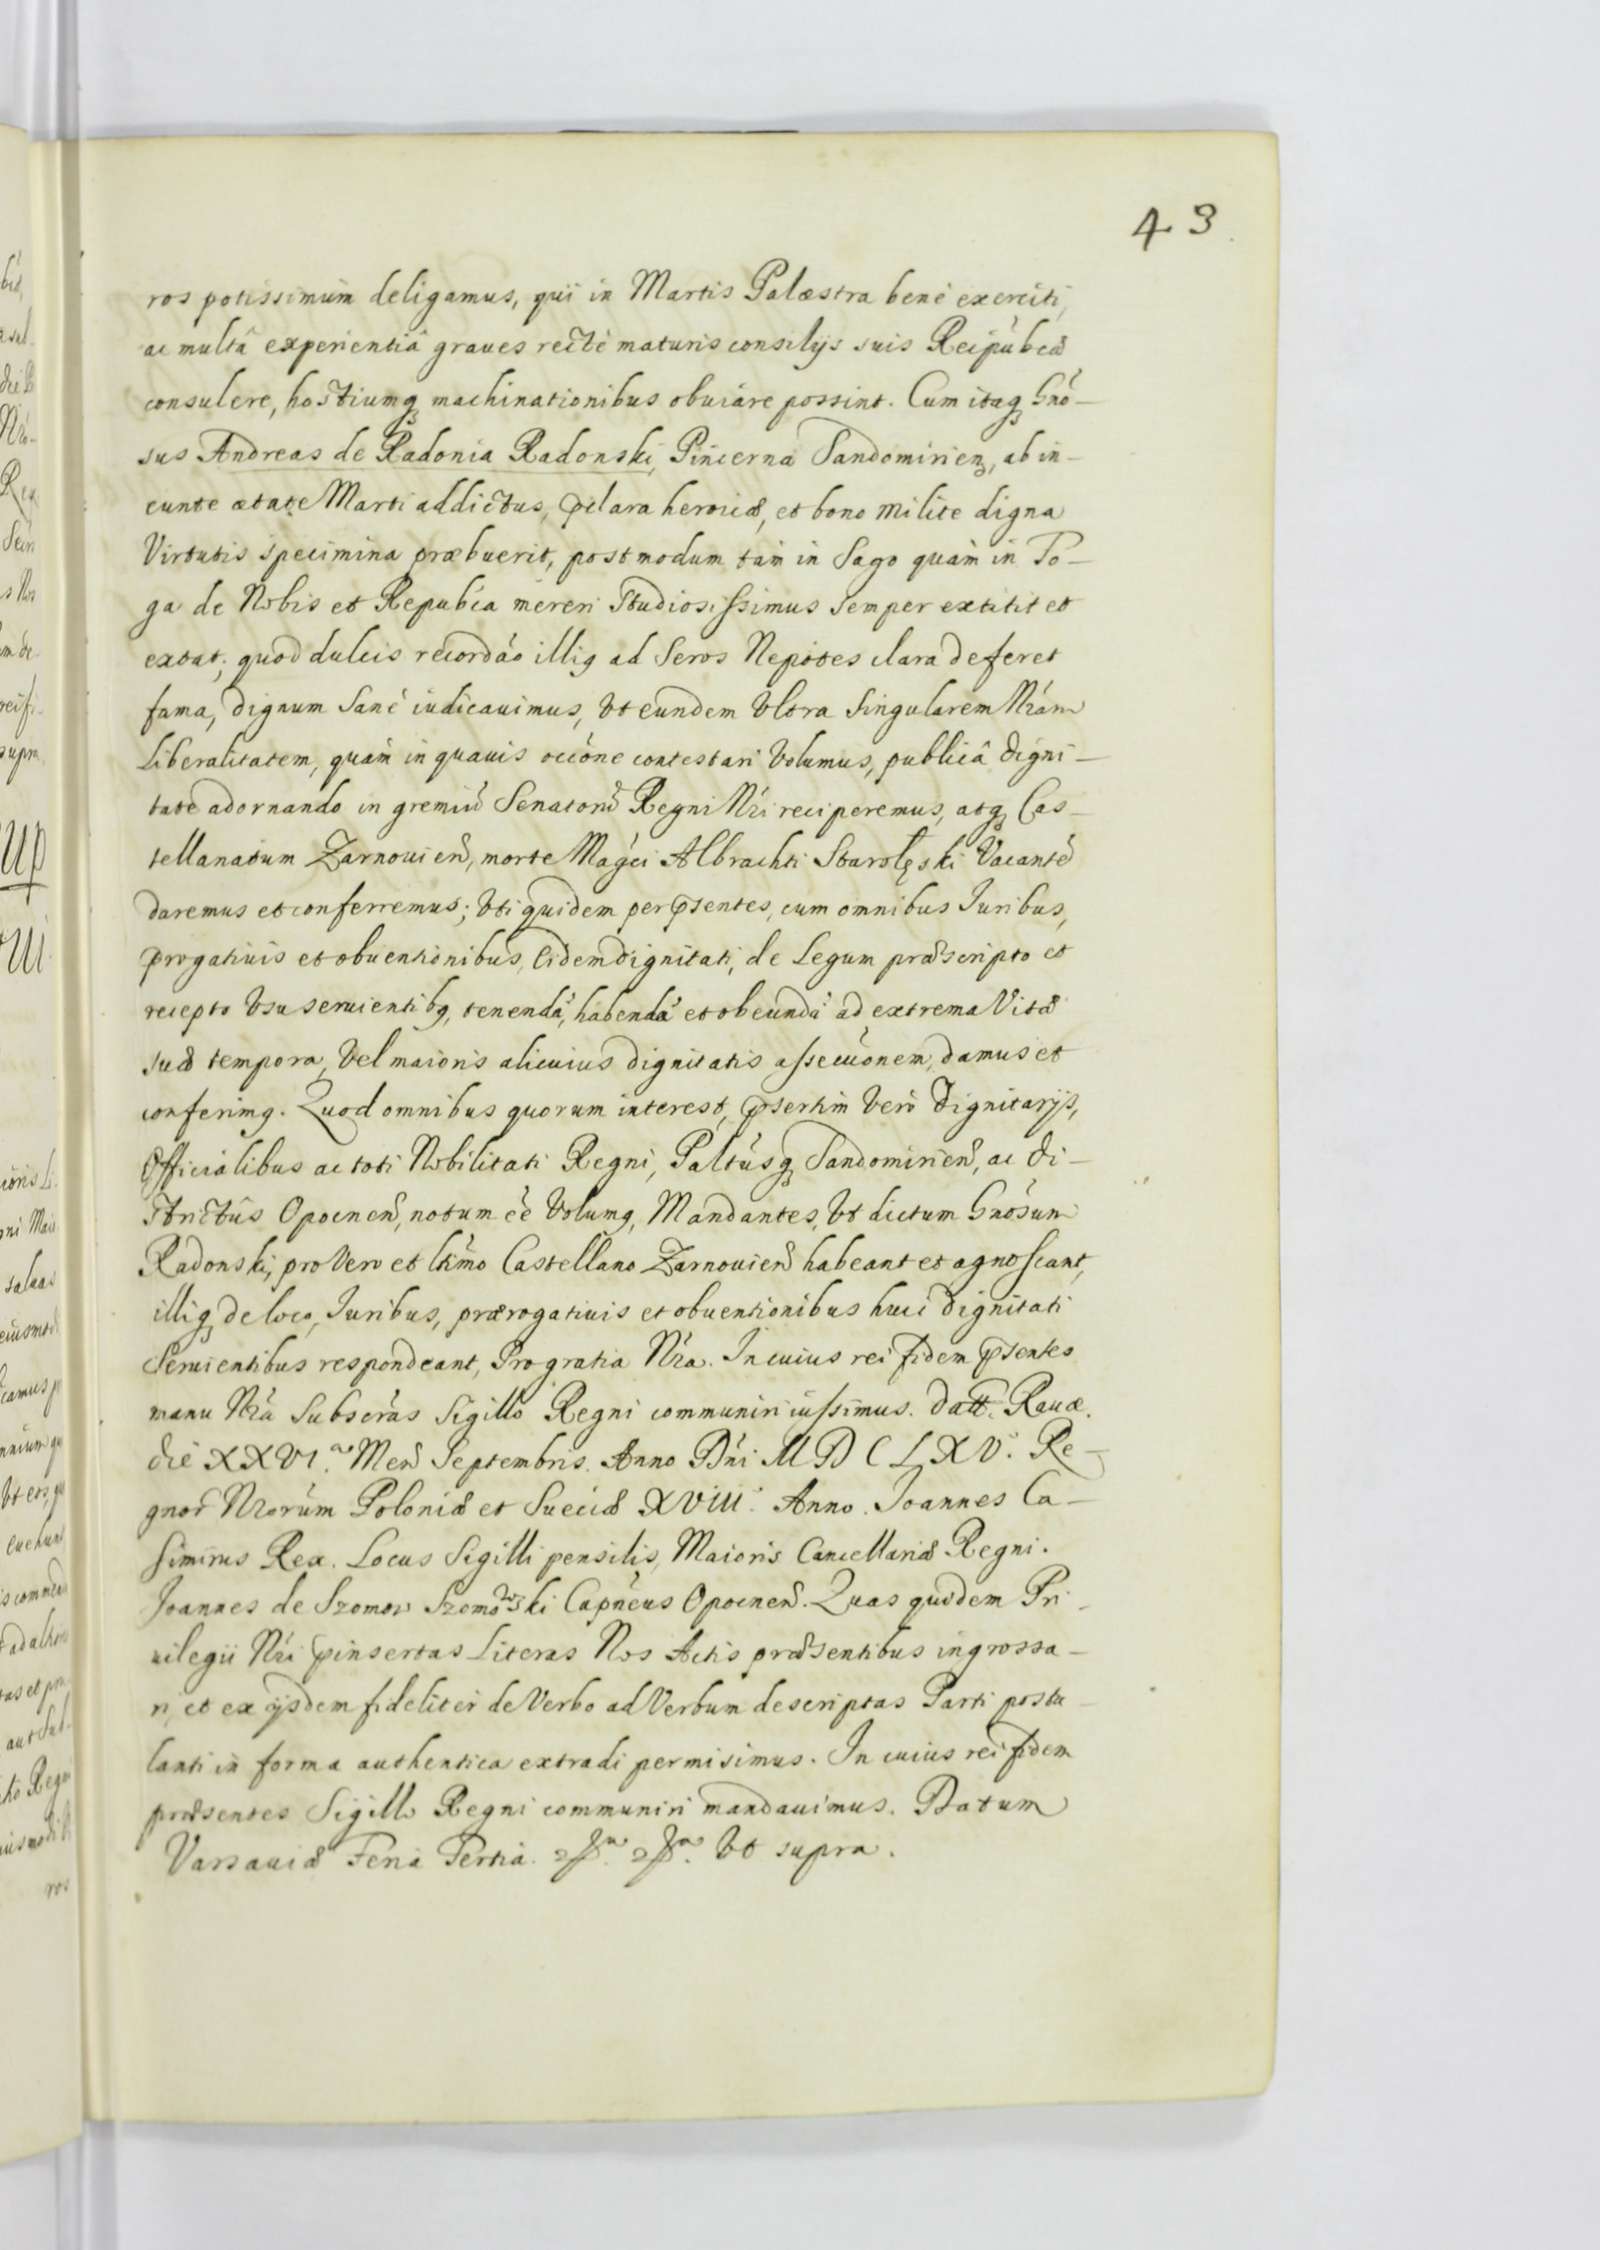 43
ros potissimùm deligamus, qui in Martis Palæstra benè exerciti,
ac multâ experientiâ graues rectè maturis consilijs suis Reipúbcæ
consulere, hostiumq̃ machinationibus obuiare possint. Cum itaq̃ Gnó-
sus Andreas de Radonia Radonski, Pincerna Sandomirien̄, ab in-
eunte ætate Marti addictus, p̄clara heroicæ, et bono milite digna
Virtutis specimina præbuerit, postmodum tàm in Sago quàm in To-
ga de Nobis et Repubĉa mereri studiosissimus semper extitit et
extat; quod dulcis recordáo illig ad Seros Nepotes clara deferet
fama, dignum sanè iudicauimus, Vt eundem Vltra singularem Nrám
Liberalitatem, quàm in quauis occóne contestari Volumus, publicâ digni-
tate adornando in gremiũ Senatorũ Regni Nri reciperemus, atq̃ Cas-
tellanatum Zarnouień, morte Magći Albrachti Starolęski Vacantẽ
daremus et conferremus; Vti quidem per p̄sentes, cum omnibus Iuribus,
p̄rogatiuis et obuentionibus, Eidem dignitati, de Legum præscripto et
recepto Vsu seruientibg, tenendã, habendã et obeundã ad extrema Vitæ
suæ tempora, Vel maioris alicuius dignitatis assecuónem, damus et
conferimg. Quod omnibus quorum interest, p̄sertim Verò Dignitarijs,
Officialibus ac toti Nobilitati Regni, Paltûsq̃ Sandomirień, ac Di-
strictûs Opocneń, notum eẽ Volumg, Mandantes, Vt dictum Gnósum
Radonski, pro Vero et ltímo Castellano Zarnouień habeant et agnoscant,
illiq̃ de loco, Iuribus, prærogatiuis et obuentionibus huic dignitati
seruientibus respondeant, Pro gratia Nrá. In cuius rei fidem p̄sentes
manu Nrá Subscràs Sigillo Regni communiri iussimus. Datt. Rauæ.
die XXVI.a Meń Septembris. Anno Dńi MDCLXV. Re-
gnor̃ Nrorùm Poloniæ et Sueciæ XVIII. Anno. Joannes Ca-
simirus Rex. Locus Sigilli pensilis, Maioris Cancellariæ Regni.
Joannes de Szomow Szomowski Capńeus Opocneń. Quas quidem Pri-
uilegii Nri p̄insertas Literas Nos Actis præsentibus ingrossa-
ri, et ex ijsdem fideliter de Verbo ad Verbum descriptas Parti postu-
lanti in forma authentica extradi permisimus. In cuius rei fidem
præsentes Sigillo Regni communiri mandauimus. Datum
Varsauiæ Feria Tertia. Vt supra.